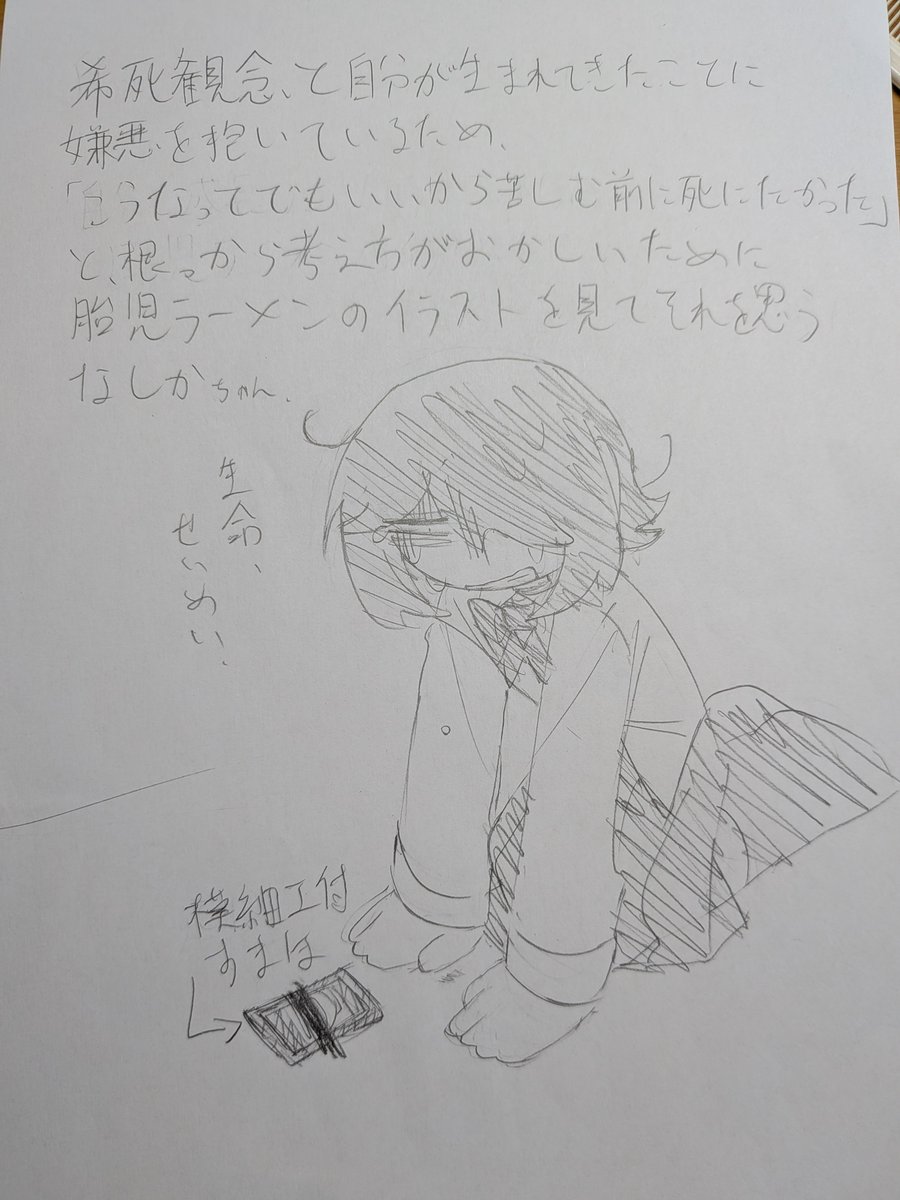 希死観念、と自分が生まれてきたことに
嫌悪を抱いているため、
うなってでもいいから苦しむ前に死にたかった」
と、根っから考え方がおかしいために
胎児ラーメンのイラストを見てそれを思う
なしかちゃん.
生命、
せいめい.
細工付
すまほ